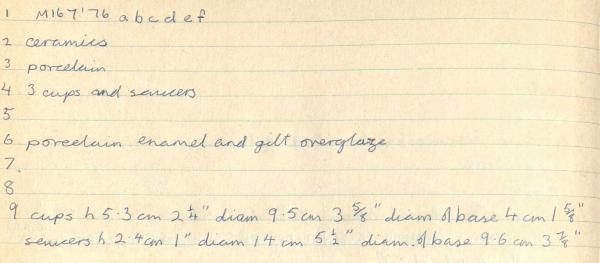 1 M167'76 a b c d e f
2 ceramics
3 porcelain
4 3 cups and saucers
5
6 porcelain enamel and gilt overglaze
7.
8
9 cups h 5.3 cm 2 1/4" diam 9.5 cm 3 5/8" diam of base 4 cm 1 5/8"
saucers h 2.4 cm 1" diam 14 cm 5 1/2" diam. of base 9.6 cm 3 7/8"